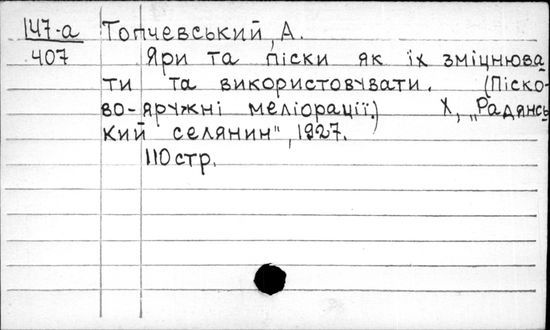 147-а Топчевський, А.
407 Яри та піски як їх зміцнюва
ти та використовувати. (Піско-
во-яружні меліорації.) Х, „Радянсь
кий селянин", 1927.
110 стр.